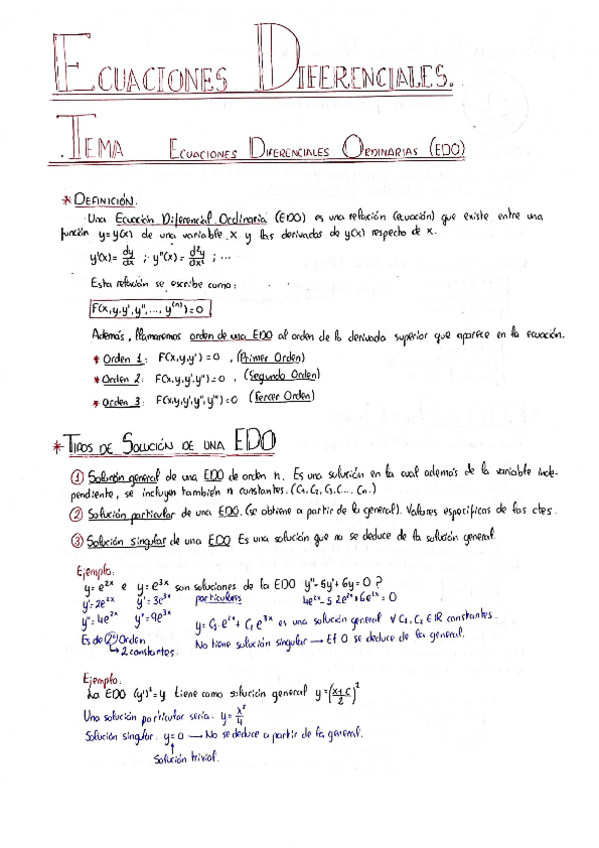 ECUACIONES DIFERENCIALES.
TEMA ECUACIONES DIFERENCIALES ORDINARIAS (EDO)
* DEFINICIÓN.
Una Ecuación Diferencial Ordinaria (EDO) es una relación (ecuación) que existe entre una
función y=y(x) de una variable x y las derivadas de y(x) respecto de x.
y'(x)= dy/dx ; y''(x)= d²y/dx² ; ...
Esta relación se escribe como:
F(x,y,y',y'',..., y⁽ⁿ⁾)=0
Además, llamaremos orden de una EDO al orden de la derivada superior que aparece en la ecuación.
* Orden 1: F(x,y,y')=0, (Primer Orden)
* Orden 2: F(x,y,y',y'')=0, (Segundo Orden)
* Orden 3: F(x,y,y',y'',y''')=0 (Tercer Orden)
* TIPOS DE SOLUCIÓN DE UNA EDO
① Solución general de una EDO de orden n. Es una solución en la cual además de la variable inde-
pendiente, se incluyen también n constantes. (C₁, C₂, C₃, C... Cn)
② Solución particular de una EDO. (se obtiene a partir de la general). Valores específicos de las ctes.
③ Solución singular de una EDO Es una solución que no se deduce de la solución general.
Ejemplo:
y=e²ˣ e y=e³ˣ son soluciones de la EDO y''-5y'+6y=0 ?
y'=2e²ˣ y'=3e³ˣ particulares 4e²ˣ-5 2e²ˣ+6e²ˣ=0
y''=4e²ˣ y''=9e³ˣ y=C₁e²ˣ+C₂e³ˣ es una solución general ∀C₁,C₂∈ℝ constantes.
Es de ② Orden No tiene solución singular → El 0 se deduce de la general.
↳ 2 constantes.
Ejemplo:
La EDO (y')²=y tiene como solución general y=((x+C)/2)²
Una solución particular sería: y=x²/4
Solución singular: y=0 → No se deduce a partir de la general.
↑
Solución trivial.